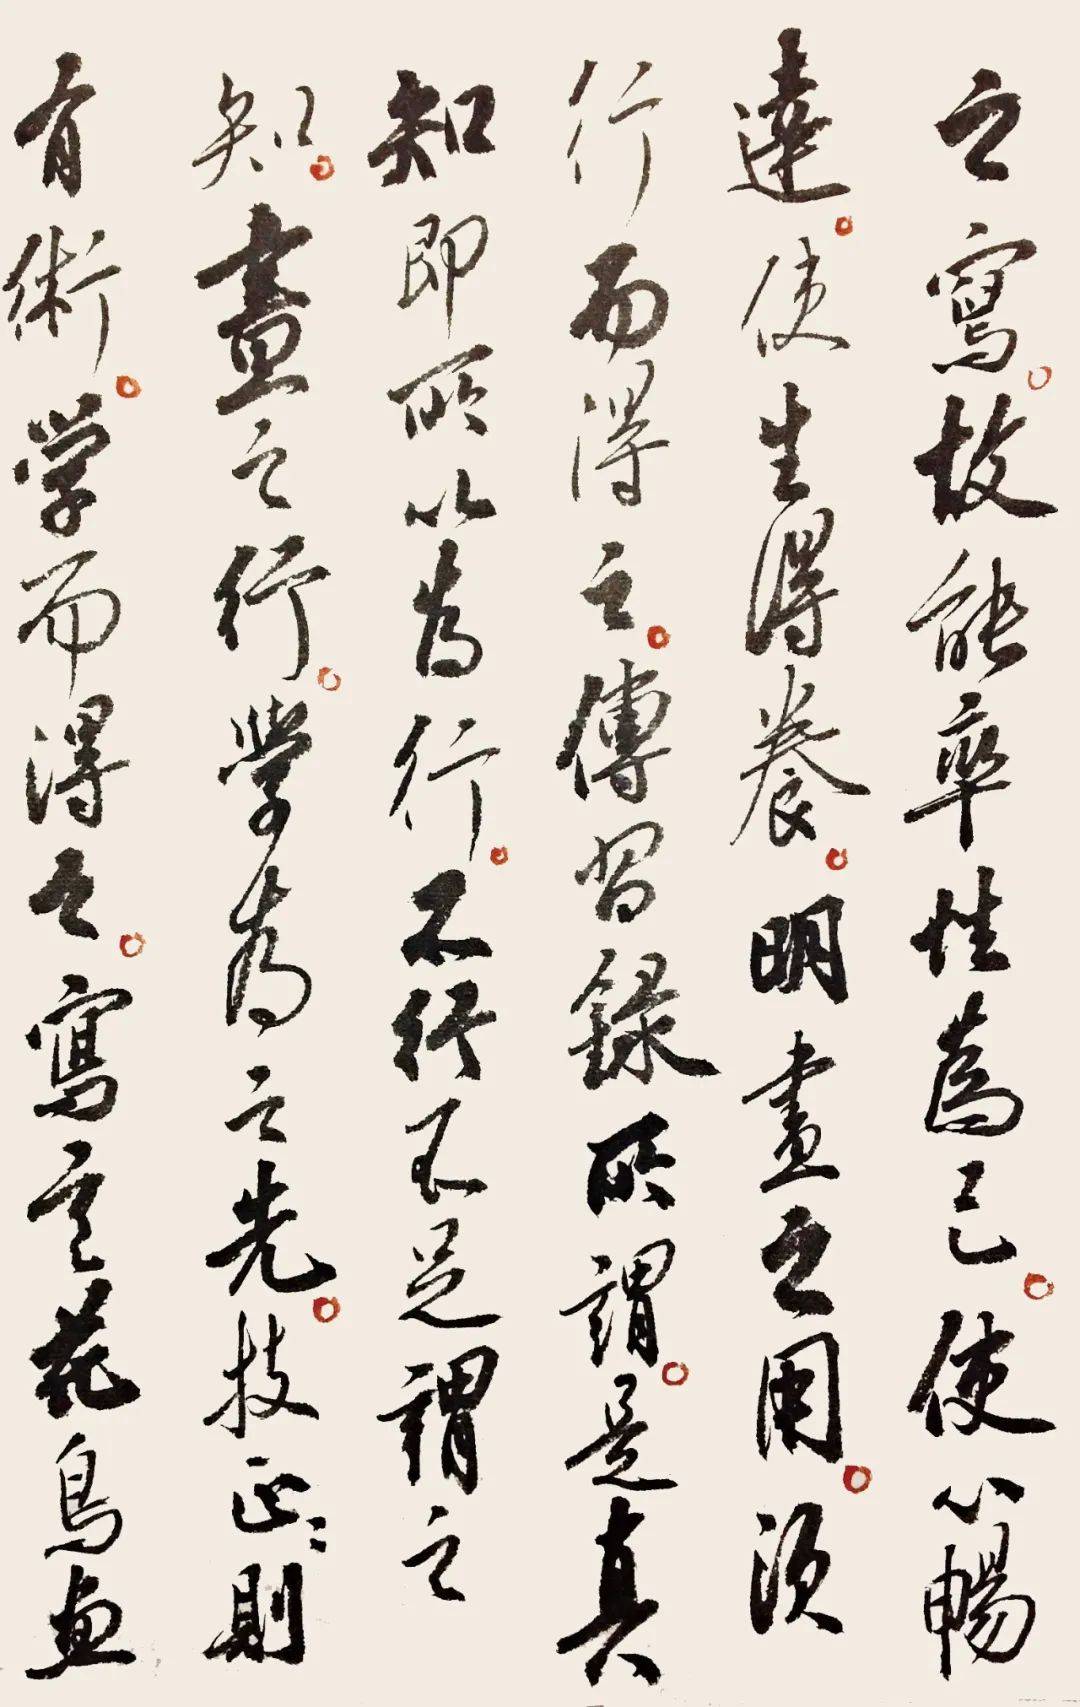 之寫故能率性爲己使心暢
達使生得養明畫之用須
行而得之傳習錄所謂是真
知即所以为行不行不足謂之
知畫之行學为之先技正〻則
有術学而得之寫意花鳥画